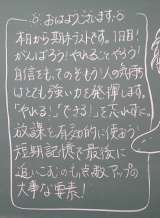 おはようございます。
本日から期末テストです。1日目!
がんばろう!やれることやろう!
自信をもてのぞもう!人の気持ち
はとても強い力を発揮します。
「やれる!」「できる!」を忘れずに。
放課を有効的に使おう!
短期記憶で最後に
追いこむのも点数アップの
大事な要素!